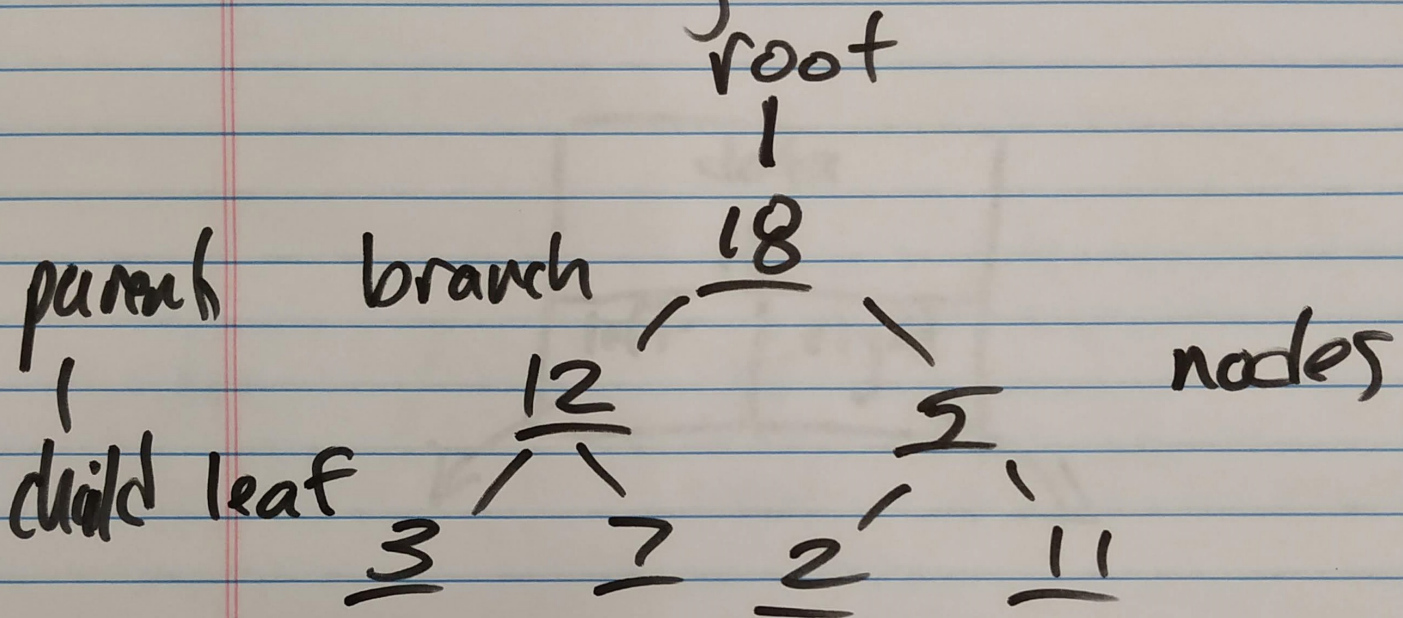 root
18
parent branch
12 5 nodes
child leaf
3 7 2 11